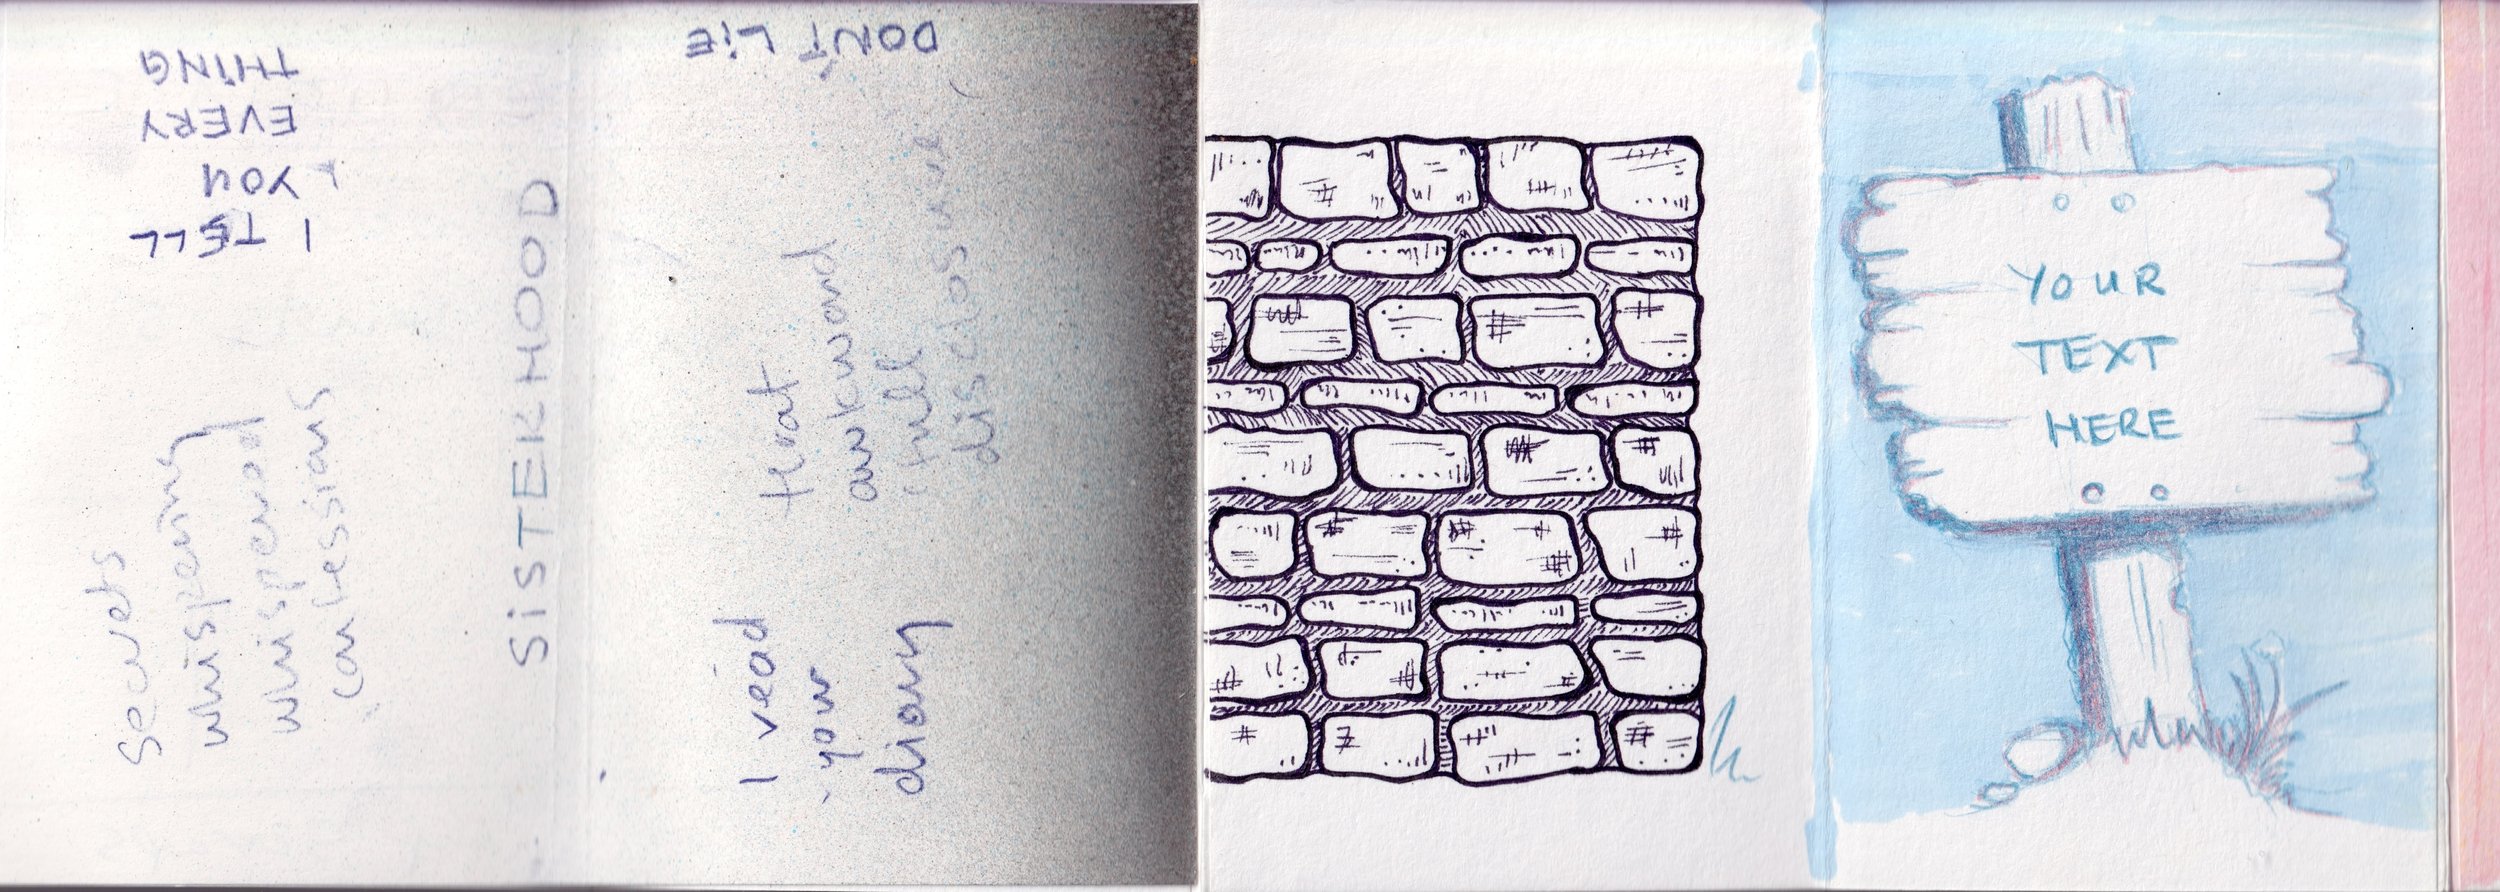 I TELL
YOU
EVERY
THING
Secrets
whispering
whispered
confessions
SISTERHOOD
DON'T LIE
I read
your
diary
that
awkward
(full
disclosure)
YOUR
TEXT
HERE